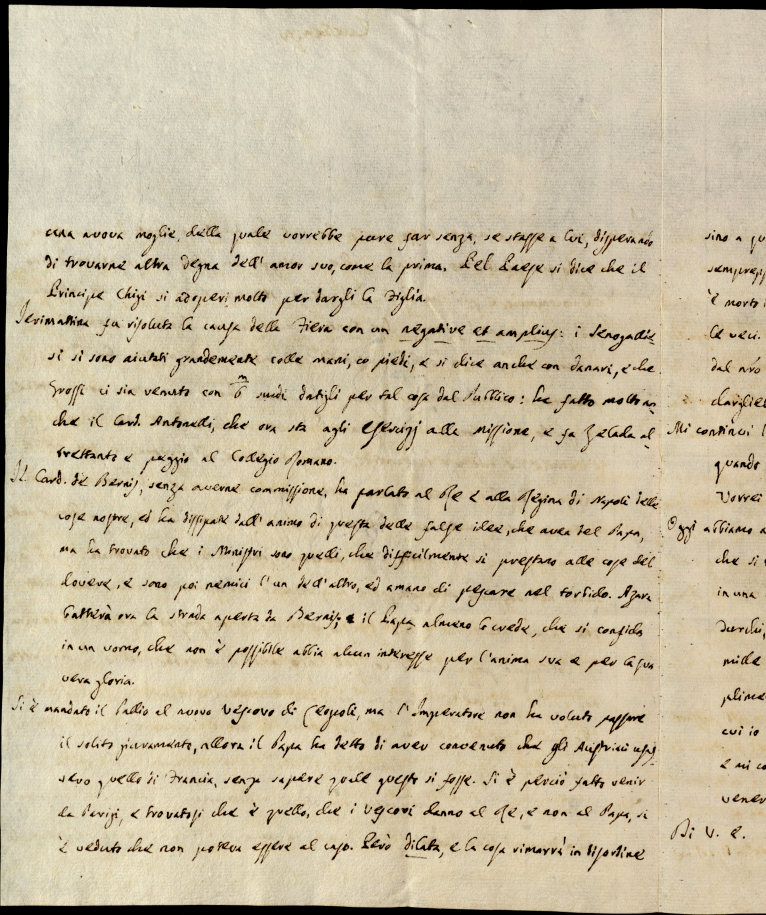 una nuova moglie, della quale vorrebbe pure far senza, se stasse a lui, disperando
di trovarne altra degna dell' amor suo, come la prima. Pel Paese si dice che il
Principe Chigi si adoperi molto per dargli la Figlia.
Jerimattina fu risoluta la causa della Fiera con un negative et amplius: i Senogallie
si si sono aiutati grandemente colle mani, co piedi, e si dice anche con danari, e che
Grossi ci sia venuto con 6 scudi datigli per tal cosa dal Pubblico: ha fatto molto an
che il Card. Antonelli, che ora sta agli Esercizj alla Missione, e fa Zelada al
trettanto e peggio al Collegio Romano.
Il Card. de Bernis, senza averne commissione, ha parlato al Re e alla Regina di Napoli delle
cose nostre, ed ha dissipate dall' animo di questa delle false idee, che avea del Papa,
ma ha trovato che i Ministri sono quelli, che difficilmente si prestano alle cose del
dovere, e sono poi nemici l'un dell' altro, ed amano di pescare nel torbido. Azara
batterà ora la strada aperta da Bernis, e il Papa almeno lo crede, che si confida
in un uomo, che non è possibile abbia alcun interesse per l'anima sua e per la sua
vera gloria.
Si è mandato il Pallio al nuovo Vescovo di Leopoli, ma l'Imperatore non ha voluto passare
il solito giuramento, allora il Papa ha detto di aver convenuto che gli Austriaci usas
sero quello di Francia, senza sapere quale questo si fosse. Si è perciò fatto venir
da Parigi, e trovatosi che è quello, che i Vescovi danno al Re, e non al Papa, si
è veduto che non poteva essere al caso. Però dilata, e la cosa rimarrà in disordine
sino a
è morto
le veci.
dal nro
Mi continui
quando
Vorrei
Oggi abbiamo
che si
in una
mille
cui io
e mi
Di V. E.